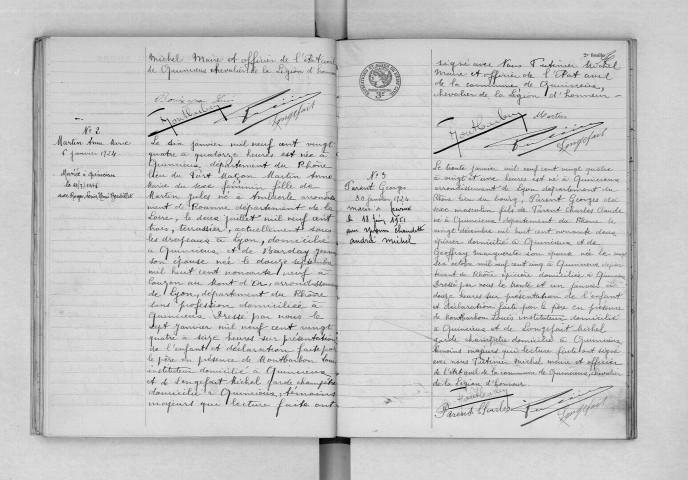 Michel Maire et officier de l'Etat civil
de Quincieux chevalier de la Légion d'honneur
Montbarbon
Longefait
No 2
Martin Anne Marie
6 janvier 1924
Mariée à Quincieux
Le six janvier mil neuf cent vingt
quatre à quatorze heures est née à
Quincieux, département du Rhône
lieu du Port Maçon Martin Anne
Marie du sexe féminin fille de
Martin Jules né à Ambierle arrondisse
ment de Roanne département de la
Loire, le deux juillet mil neuf cent
trois, terrassier, actuellement sous
les drapeaux à Lyon, domicilié
à Quincieux et de Jeanne
son épouse née le douze septembre
mil huit cent nonante neuf à
Couzon au Mont d'Or, arrondissement
de Lyon, département du Rhône
sans profession domiciliée à
Quincieux Dressé par nous le
sept janvier mil neuf cent vingt
quatre à seize heures sur présentation
de l'enfant et déclaration faite par
le père en présence de Montbarbon Louis
instituteur domicilié à Quincieux
et de Longefait Michel garde champêtre
domicilié à Quincieux, témoins
majeurs que lecture faite ont
2e feuillet
signé avec Nous Michel
Maire et officier de l'Etat civil
de la commune de Quincieux,
chevalier de la Légion d'honneur
Montbarbon
Martin
Longefait
No 3
Parent Georges
30 janvier 1924
marié à
le 18 juin 1951
avec
andrée michel
Le trente janvier mil neuf cent vingt quatre
à vingt et une heures est né à Quincieux
arrondissement de Lyon département du
Rhône lieu du bourg, Parent Georges du
sexe masculin fils de Parent Charles Claude
né à Quincieux, département du Rhône le
vingt décembre mil huit cent nonante deux
épicier domicilié à Quincieux et de
Geoffray Marguerite son épouse née le onze
mil neuf cent cinq à Quincieux dépar
tement du Rhône épicière domiciliée à Quincieux
Dressé par nous le trente et un janvier à
douze heures sur présentation de l'enfant
et déclaration faite par le père en présence
de Montbarbon Louis instituteur domicilié
à Quincieux et de Longefait Michel
garde champêtre domicilié à Quincieux,
témoins majeurs qui lecture faite ont signé
avec nous Michel maire et officier
de l'état civil de la commune de Quincieux, chevalier
de la Légion d'honneur
Montbarbon
Parent Charles
Longefait